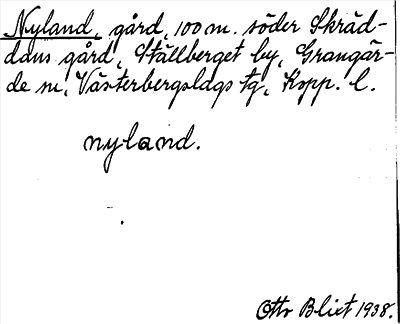 Nyland, gård, 100 m. söder Skräd-
dans gård, Ställberget by, Grangär-
de sn, Västerbergslags tg, Kopp. l.
nyland.
Otto Blixt 1938.